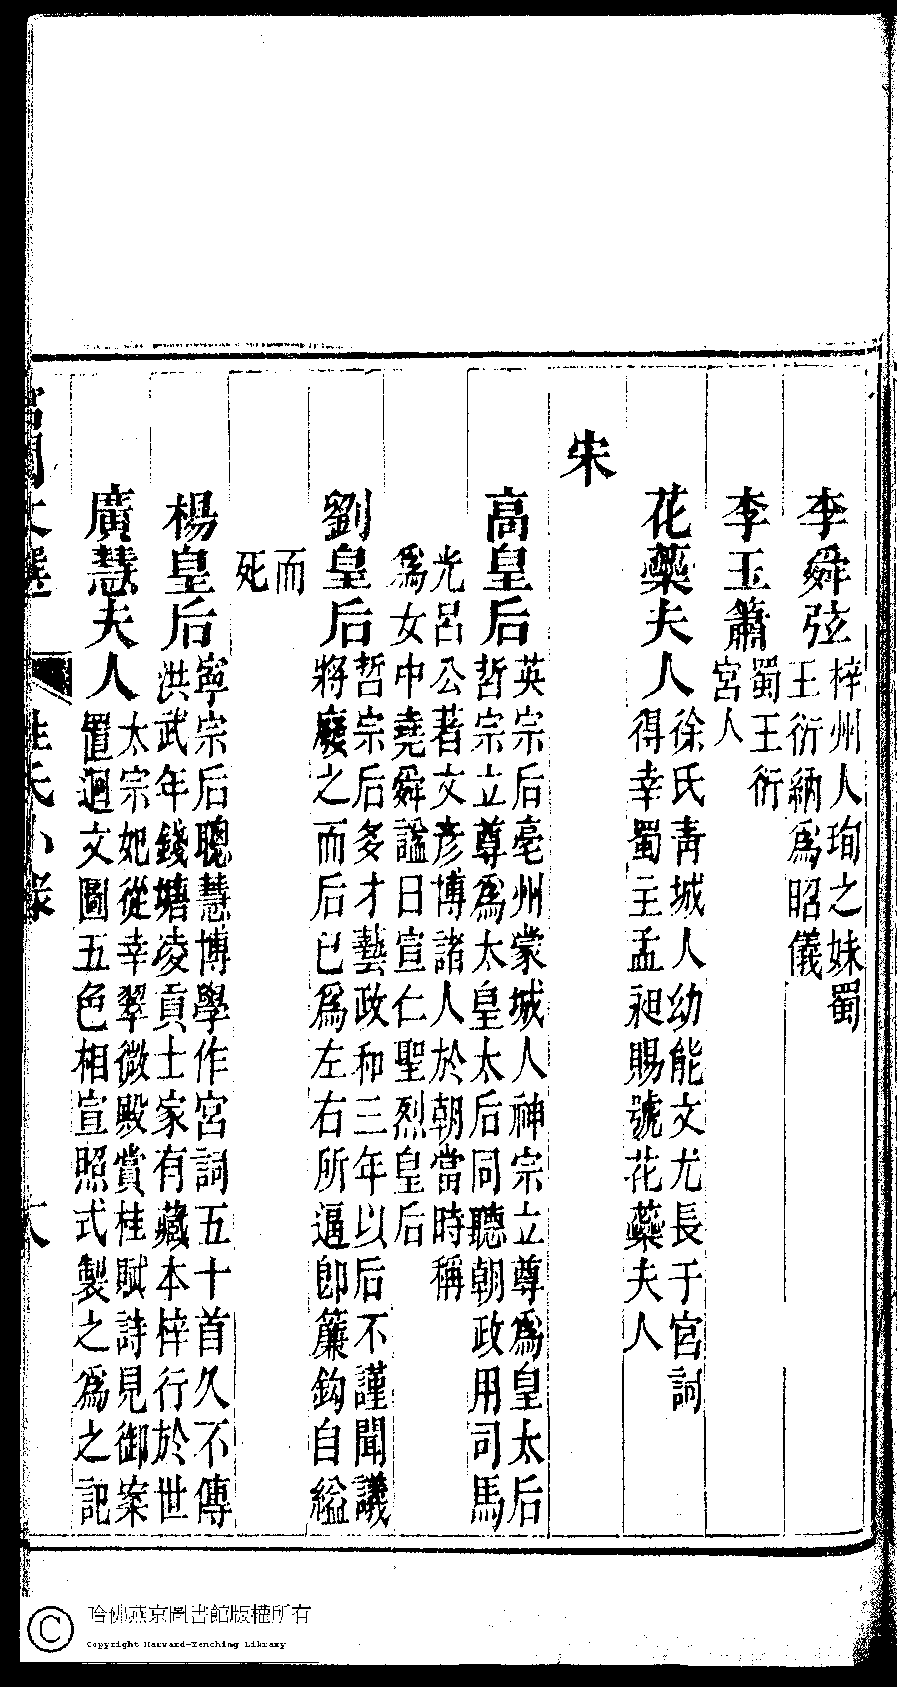 李舜弦梓州人珣之妹蜀
王衍納爲昭儀
李玉簫蜀王衍
宮人
花蘂夫人徐氏靑城人幼能文尤長于宮詞
得幸蜀主孟昶賜號花蘂夫人
宋
高皇后英宗后亳州蒙城人神宗立尊爲皇太后
哲宗立尊爲太皇太后同聽朝政用司馬
光呂公著文彥博諸人於朝當時稱
爲女中堯舜諡曰宣仁聖烈皇后
劉皇后哲宗后多才藝政和三年以后不謹聞議
將廢之而后已爲左右所逼卽簾鈎自縊
而
死
楊皇后寧宗后聰慧博學作宮詞五十首久不傳
洪武年錢塘凌貢士家有藏本梓行於世
廣慧夫人太宗妃從幸翠微殿賞桂賦詩見御案
置迴文圖五色相宣照式製之爲之記
姓氏小錄
哈佛燕京圖書館版權所有
Copyright Harvard-Yenching Library